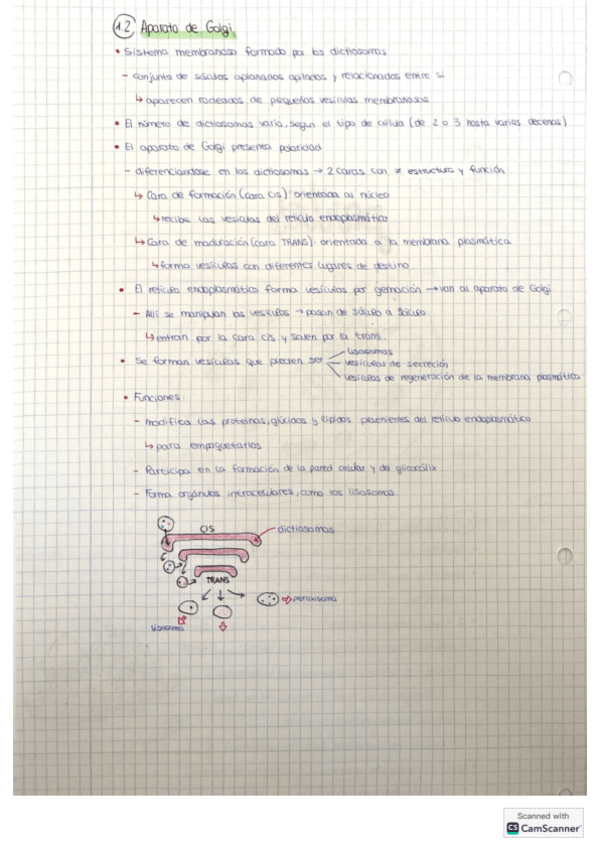 1.2 Aparato de Golgi
• Sistema membranoso formado por los dictiosomas
- Conjunto de sáculos aplanados apilados y relacionados entre sí
↳ aparecen rodeados de pequeñas vesículas membranosas
• El número de dictiosomas varía, según el tipo de célula (de 2 o 3 hasta varias decenas)
• El aparato de Golgi presenta polaridad
- diferenciándose en los dictiosomas → 2 caras con ≠ estructura y función
↳ Cara de formación (cara cis): orientada al núcleo
↳ recibe las vesículas del retículo endoplasmático
↳ Cara de maduración (cara TRANS): orientada a la membrana plasmática
↳ forma vesículas con diferentes lugares de destino.
• El retículo endoplasmático forma vesículas por gemación → van al aparato de Golgi
- Allí se manipulan las vesículas → pasan de sáculo a sáculo
↳ entran por la cara cis y salen por la trans.
• Se forman vesículas que pueden ser
lisosomas
vesículas de secreción
vesículas de regeneración de la membrana plasmática
• Funciones:
- modifica las proteínas, glúcidos y lípidos provenientes del retículo endoplasmático
↳ para empaquetarlos
- Participa en la formación de la pared celular y del glicocálix
- Forma orgánulos intracelulares, como los lisosomas.
CIS
dictiosomas
TRANS
peroxisoma
lisosoma
Scanned with
CS CamScanner